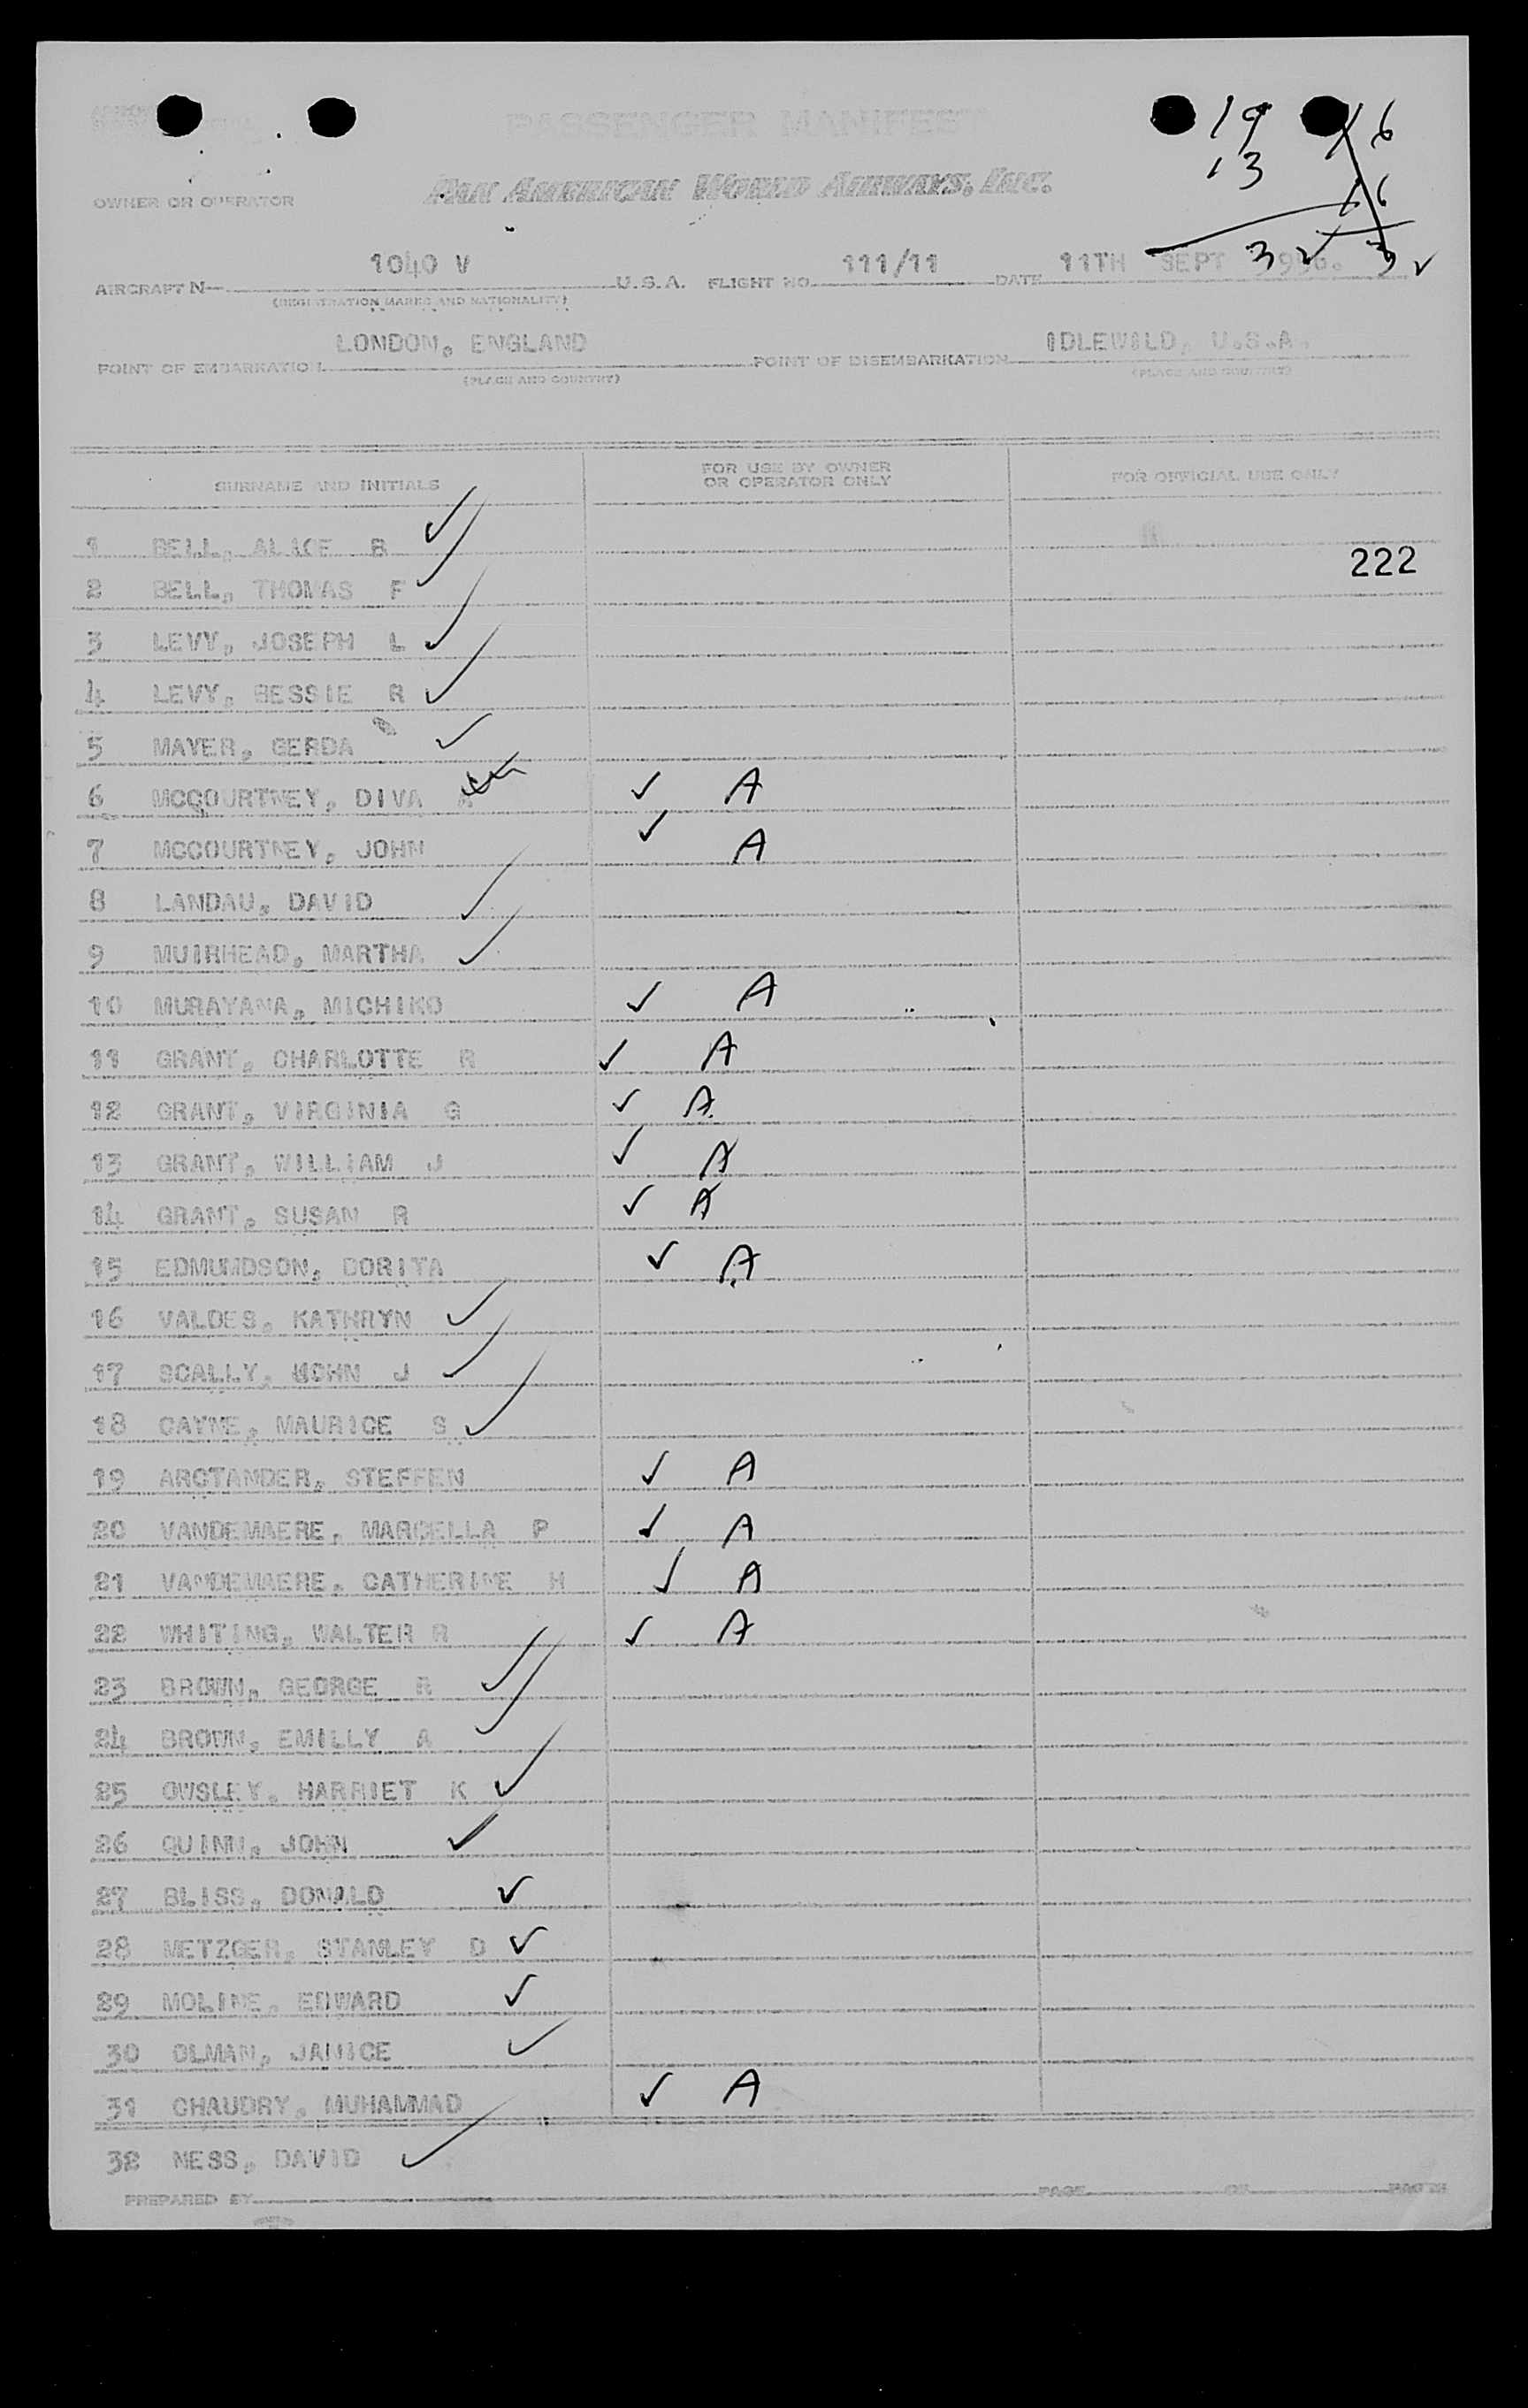 19 16
13 16
32 32
PASSENGER MANIFEST
PAN AMERICAN WORLD AIRWAYS, INC.
OWNER OR OPERATOR
AIRCRAFT N— 1040 V U.S.A. FLIGHT NO. 111/11 DATE 11TH SEPT 1956.
(REGISTRATION MARKS AND NATIONALITY)
POINT OF EMBARKATION LONDON, ENGLAND POINT OF DISEMBARKATION IDLEWILD, U.S.A.
(PLACE AND COUNTRY) (PLACE AND COUNTRY)
SURNAME AND INITIALS FOR USE BY OWNER OR OPERATOR ONLY FOR OFFICIAL USE ONLY
1 BELL, ALICE B ✓
222
2 BELL, THOMAS F ✓
3 LEVY, JOSEPH L ✓
4 LEVY, BESSIE R ✓
5 MAYER, GERDA ✓
6 MCCOURTNEY, DIVA A ✓ A
7 MCCOURTNEY, JOHN ✓ A
8 LANDAU, DAVID ✓
9 MUIRHEAD, MARTHA ✓
10 MURAYAMA, MICHIKO ✓ A
11 GRANT, CHARLOTTE R ✓ A
12 GRANT, VIRGINIA G ✓ A
13 GRANT, WILLIAM J ✓ A
14 GRANT, SUSAN R ✓ A
15 EDMUNDSON, DORITA ✓ A
16 VALDES, KATHRYN ✓
17 SCALLY, JOHN J ✓
18 CAYNE, MAURICE S ✓
19 ARCTANDER, STEFFEN ✓ A
20 VANDEMAERE, MARCELLA P ✓ A
21 VANDEMAERE, CATHERINE H ✓ A
22 WHITING, WALTER R ✓ A
23 BROWN, GEORGE R ✓
24 BROWN, EMILLY A ✓
25 OWSLEY, HARRIET K ✓
26 QUINN, JOHN ✓
27 BLISS, DONALD ✓
28 METZGER, STANLEY D ✓
29 MOLINE, EDWARD ✓
30 OLMAN, JANICE ✓
31 CHAUDRY, MUHAMMAD ✓ A
32 NESS, DAVID ✓
PREPARED BY PAGE OF PAGES